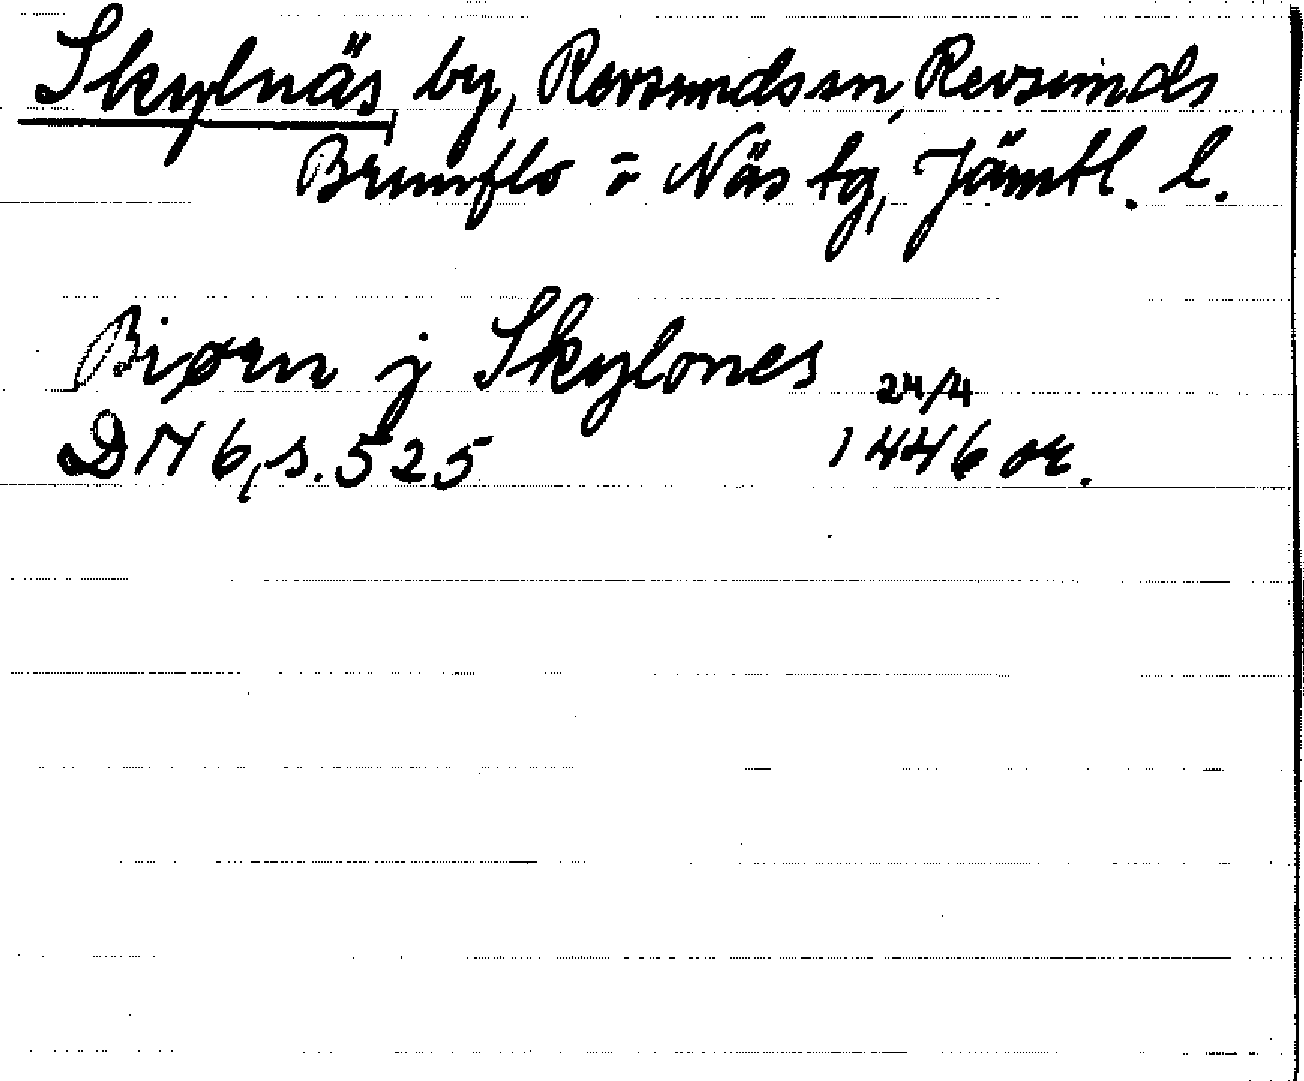 Skylnäs by, Revsunds sn, Revsunds
Brunflo o Näs tg, Jämtl. l.
Biørn j Skylones
24/4
DN 6, s. 525 1446 or.